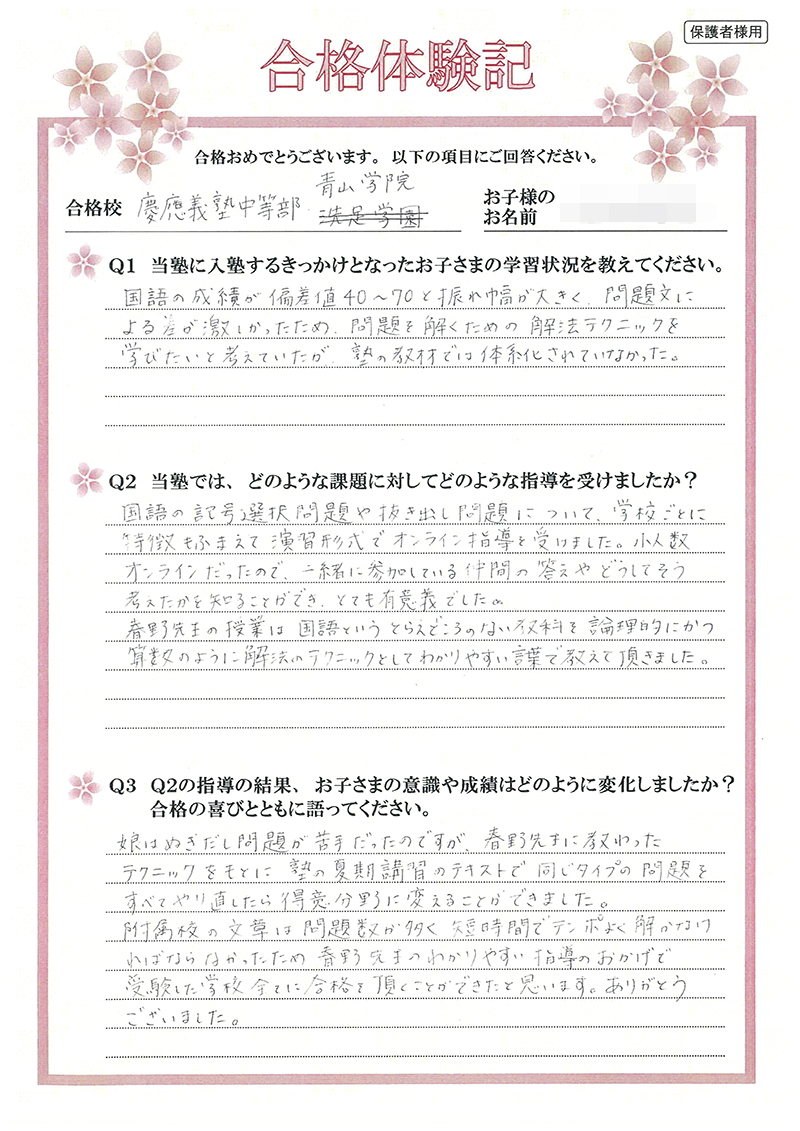 保護者様用
合格体験記
合格おめでとうございます。以下の項目にご回答ください。
合格校 慶應義塾中等部 青山学院 洗足学園
お子様の
お名前
Q1 当塾に入塾するきっかけとなったお子さまの学習状況を教えてください。
国語の成績が偏差値40〜70と振れ幅が大きく、問題文に
よる差が激しかったため、問題を解くための解法テクニックを
学びたいと考えていたが、塾の教材では体系化されていなかった。
Q2 当塾では、どのような課題に対してどのような指導を受けましたか？
国語の記号選択問題や抜き出し問題について、学校ごとに
特徴もふまえて演習形式でオンライン指導を受けました。小人数
オンラインだったので、一緒に参加している仲間の答えやどうしてそう
考えたかを知ることができ、とても有意義でした。
春野先生の授業は国語というとらえどころのない教科を論理的にかつ
算数のように解法のテクニックとしてわかりやすい言葉で教えて頂きました。
Q3 Q2の指導の結果、お子さまの意識や成績はどのように変化しましたか？
合格の喜びとともに語ってください。
娘はぬきだし問題が苦手だったのですが、春野先生に教わった
テクニックをもとに塾の夏期講習のテキストで同じタイプの問題を
すべてやり直したら得意分野に変えることができました。
附属校の文章は問題数が多く短時間でテンポよく解かなけ
ればならなかったため春野先生のわかりやすい指導のおかげで
受験した学校全てに合格を頂くことができたと思います。ありがとう
ございました。